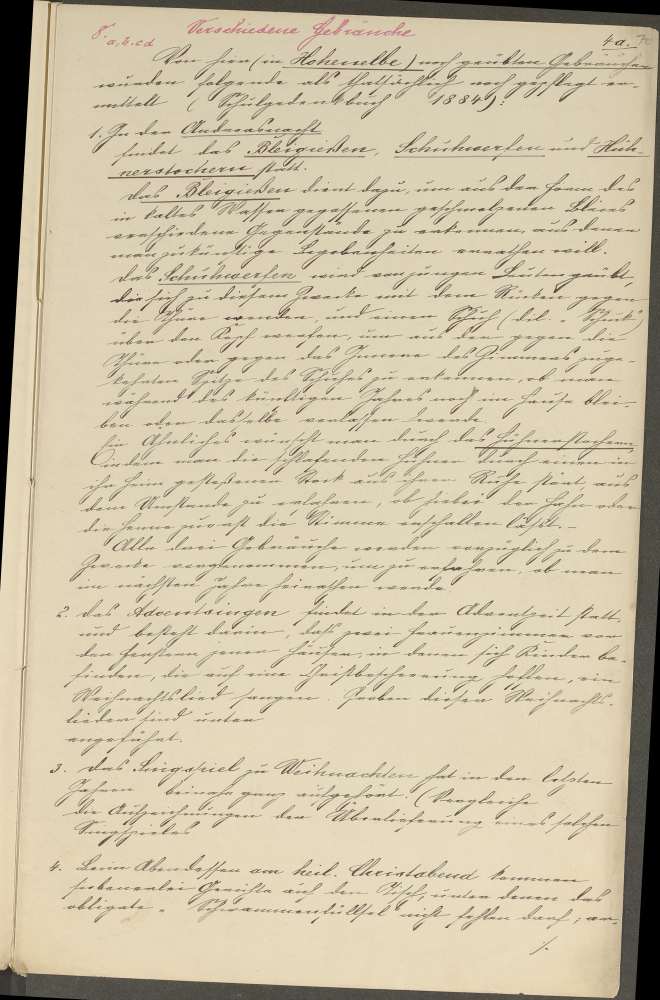 8. a, b. c d Verschiedene Gebräuche 4 a.
Von hier (in Hohenelbe) noch geübten Gebräuchen
wurden folgende als thatsächlich noch gepflegt er-
mittelt (Schulgedenkbuch 1884):
1. In der Andreasnacht
findet das Bleigießen, Schuhwerfen und Hüh-
nerstochern statt.
Das Bleigießen dient dazu, um aus der Form des
in kaltes Wasser gegossenen geschmolzenen Bleies
verschiedene Gegenstände zu erkennen, aus denen
man zukünftige Begebenheiten errathen will.
Das Schuhwerfen wird von jungen Leuten geübt,
die sich zu diesem Zwecke mit dem Rücken gegen
die Thüre wenden, und einen Schuh (dil. „Schuk")
über den Kopf werfen, um aus der gegen die
Thüre oder gegen das Innere des Zimmers zuge-
kehrten Spitze des Schuhes zu erkennen, ob man
während des künftigen Jahres noch im Hause blei-
ben oder dasselbe verlassen werde.
Ein Ähnliches wünscht man durch das Hühnerstochern,
indem man die schlafenden Hühner durch einen in
ihr Heim gestoßenen Stock aus ihrer Ruhe stört, aus
dem Umstande zu erfahren, ob hiebei der Hahn oder
die Henne zuerst die Stimme erschallen läßt.—
Alle drei Gebräuche werden vorzüglich zu dem
Zwecke vorgenommen, um zu erfahren, ob man
im nächsten Jahre heirathen werde.
2. Das Adventsingen findet in der Adventzeit statt,
und besteht darin, daß zwei Frauenzimmer vor
den Fenstern jener Häuser, in denen sich Kinder be-
finden, die auf eine Christbescherung hoffen, ein
Weihnachtslied sangen. Proben dieser Weihnachts-
lieder sind unten
angeführt.
3. Das Singspiel zu Weihnachten hat in den letzten
Jahren beinahe ganz aufgehört. (Vergleiche
die Aufzeichnungen der Überlieferung eines solchen
Singspieles
4. Beim Abendessen am heil. Christabend kommen
siebenerlei Gerichte auf den Tisch, unter denen das
obligate „Schwammenfüllsel nicht fehlen darf; er-
./.